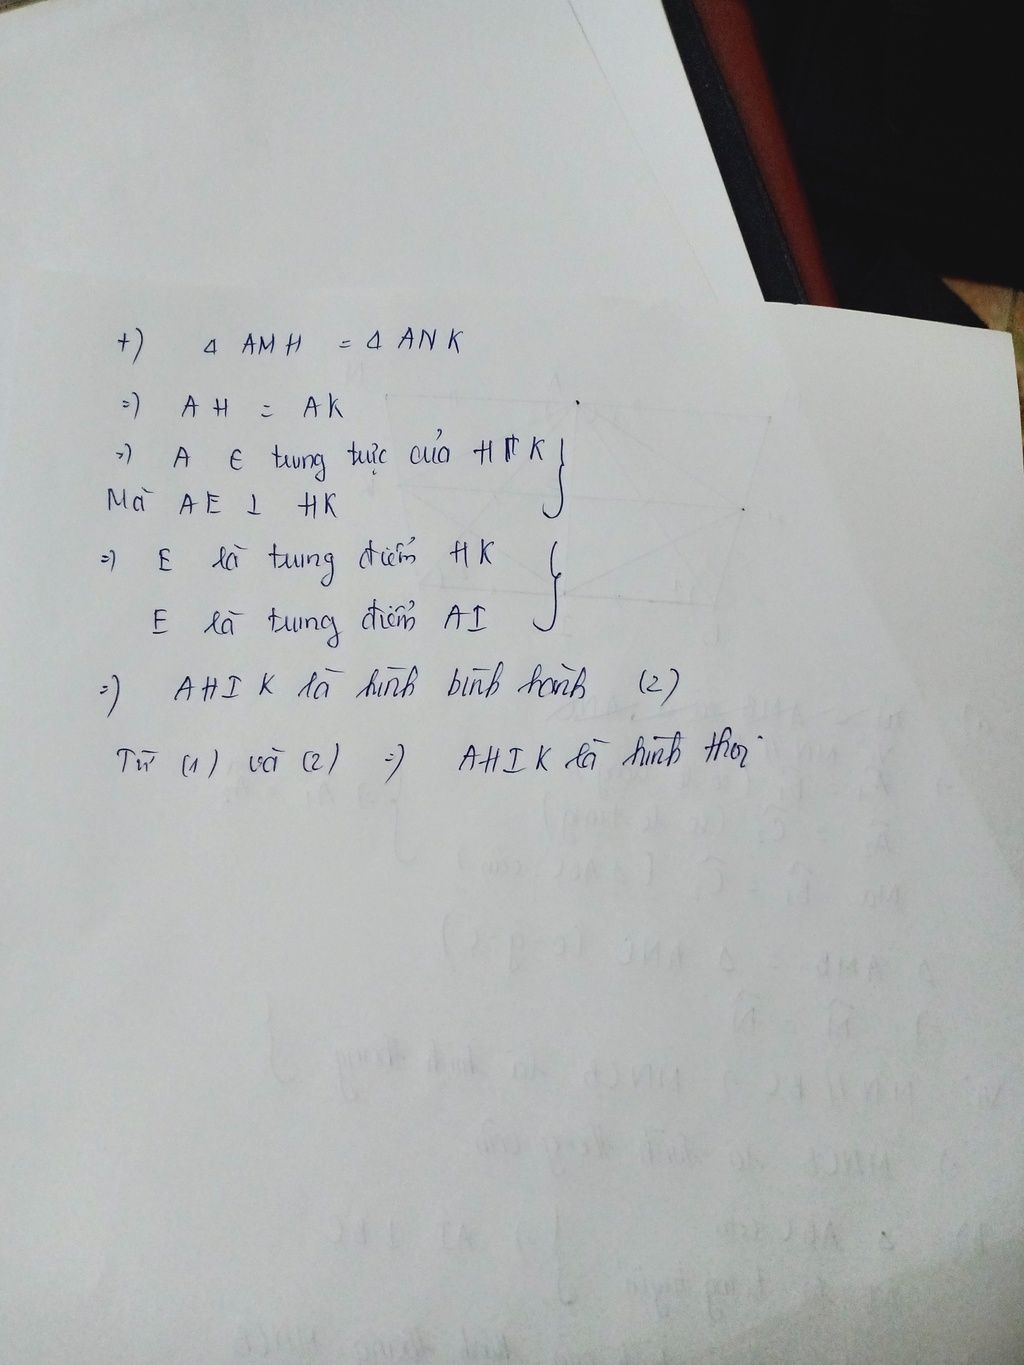 +) Δ AMH = Δ ANK
=) AH = AK
=) A ∈ trung trực của HK
Mà AE ⊥ HK
=) E là trung điểm HK
E là trung điểm AI
=) AHIK là hình bình hành (2)
Từ (1) và (2) =) AHIK là hình thoi